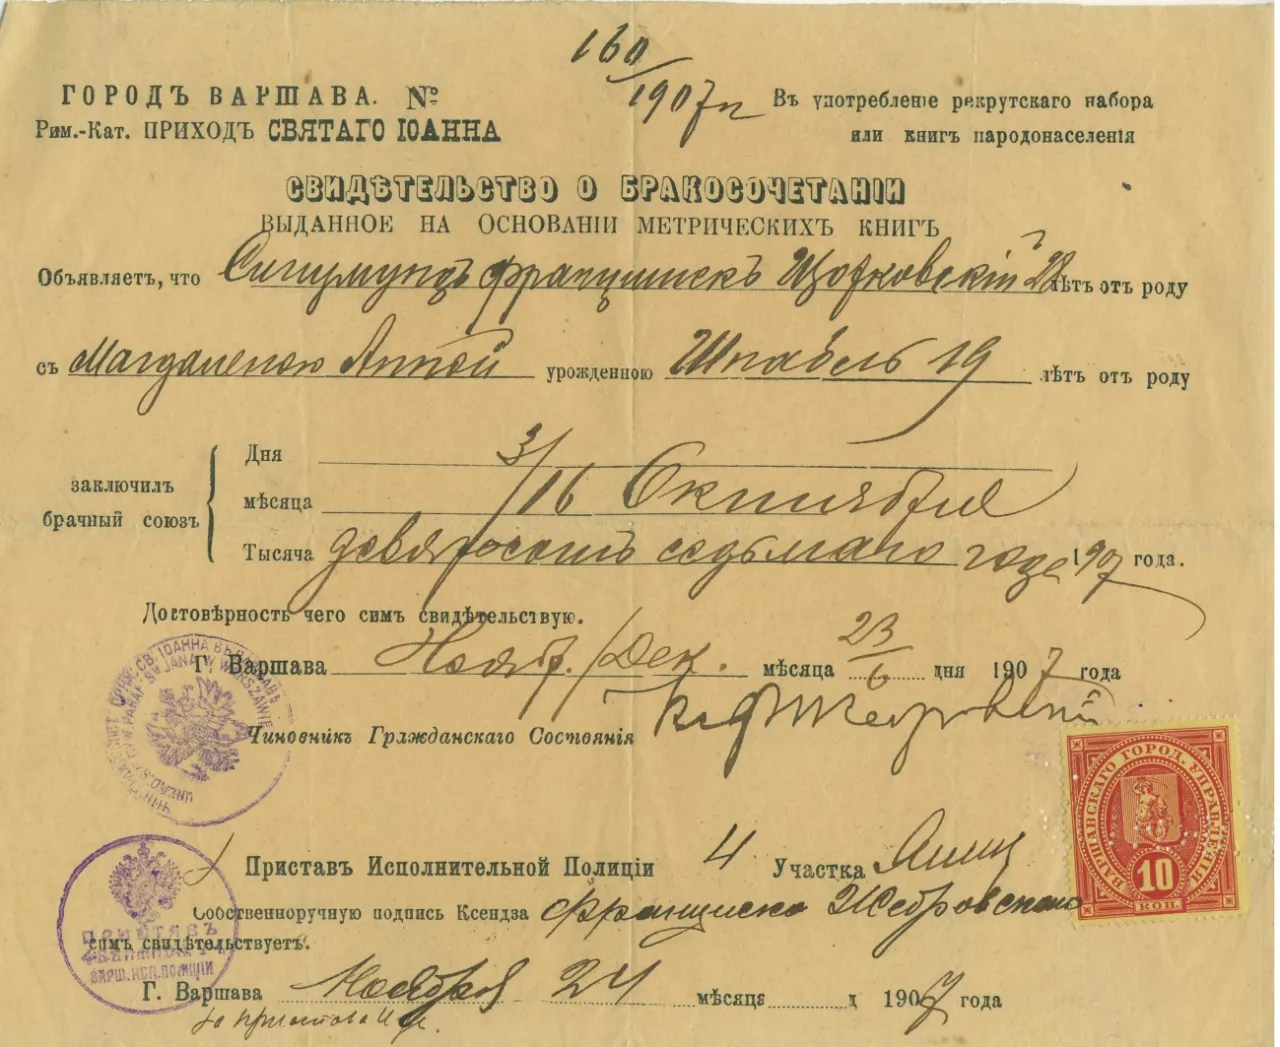 160/1907 г
ГОРОДЪ ВАРШАВА. №
Въ употребленіе рекрутскаго набора
Рим.-Кат. ПРИХОДЪ СВЯТАГО ІОАННА
или книгъ народонаселенія
СВИДѢТЕЛЬСТВО О БРАКОСОЧЕТАНІИ
ВЫДАННОЕ НА ОСНОВАНІИ МЕТРИЧЕСКИХЪ КНИГЪ
Объявляетъ, что Сигизмундъ Францишекъ 28 лѣтъ отъ роду
съ Магдаленою Анной урожденною Шнабель 19 лѣтъ отъ роду
Дня 3/16
заключилъ
мѣсяца Октября
брачный союзъ
Тысяча девятьсотъ седьмаго года 1907 года.
Достовѣрность чего симъ свидѣтельствую.
Г. Варшава Нояб./Дек. мѣсяца 23/6 дня 1907 года
Чиновникъ Гражданскаго Состоянія
Приставъ Исполнительной Полиціи 4 Участка
Собственноручную подпись Ксендза Францишка Жебровскаго
симъ свидѣтельствуетъ.
Г. Варшава Ноября 24 мѣсяца д 1907 года
за пристава
ПРИСТАВЪ
ВАРШ. ИСП. ПОЛИЦІИ
СВ. ІОАННА ВЪ ВАРШАВѢ
PARAF. Sw JANA W WARSZAWIE
ВАРШАВСКАГО ГОРОД. УПРАВЛЕНІЯ
10
КОП.